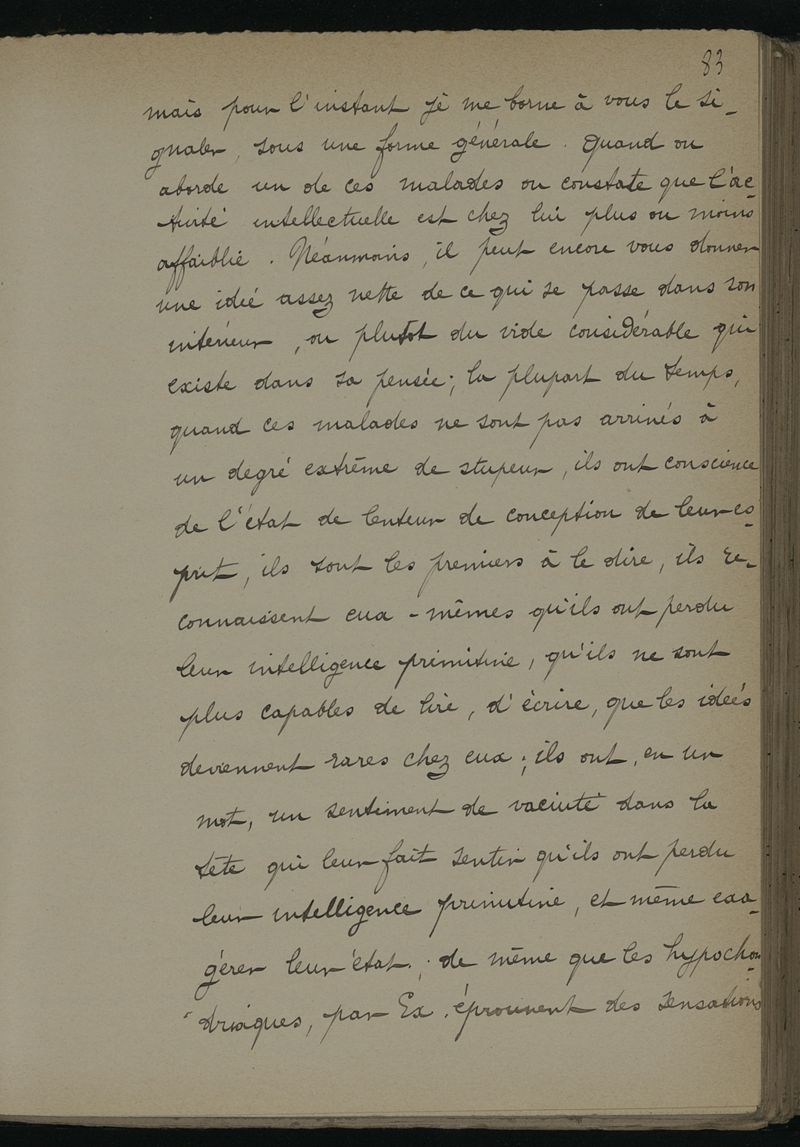 83
mais pour l'instant je me borne à vous le si-
gnaler, sous une forme générale. Quand on
aborde un de ces malades on constate que l'ac-
tivité intellectuelle est chez lui plus ou moins
affaiblie. Néanmoins, il peut encore vous donner
une idée assez nette de ce qui se passe dans son
intérieur, ou plutot du vide considérable qui
existe dans sa pensée; la plupart du temps,
quand ces malades ne sont pas arrivés à
un degré extrême de stupeur, ils ont conscience
de l'état de lenteur de conception de leur es-
prit, ils sont les premiers à le dire, ils re-
connaissent eux-mêmes qu'ils ont perdu
leur intelligence primitive, qu'ils ne sont
plus capables de lire, d'écrire, que les idées
deviennent rares chez eux; ils ont, en un
mot, un sentiment de vacuité dans la
tête qui leur fait sentir qu'ils ont perdu
leur intelligence primitive, et même exa-
gérer leur état; de même que les hypochon-
driaques, par Ex. éprouvent des sensations